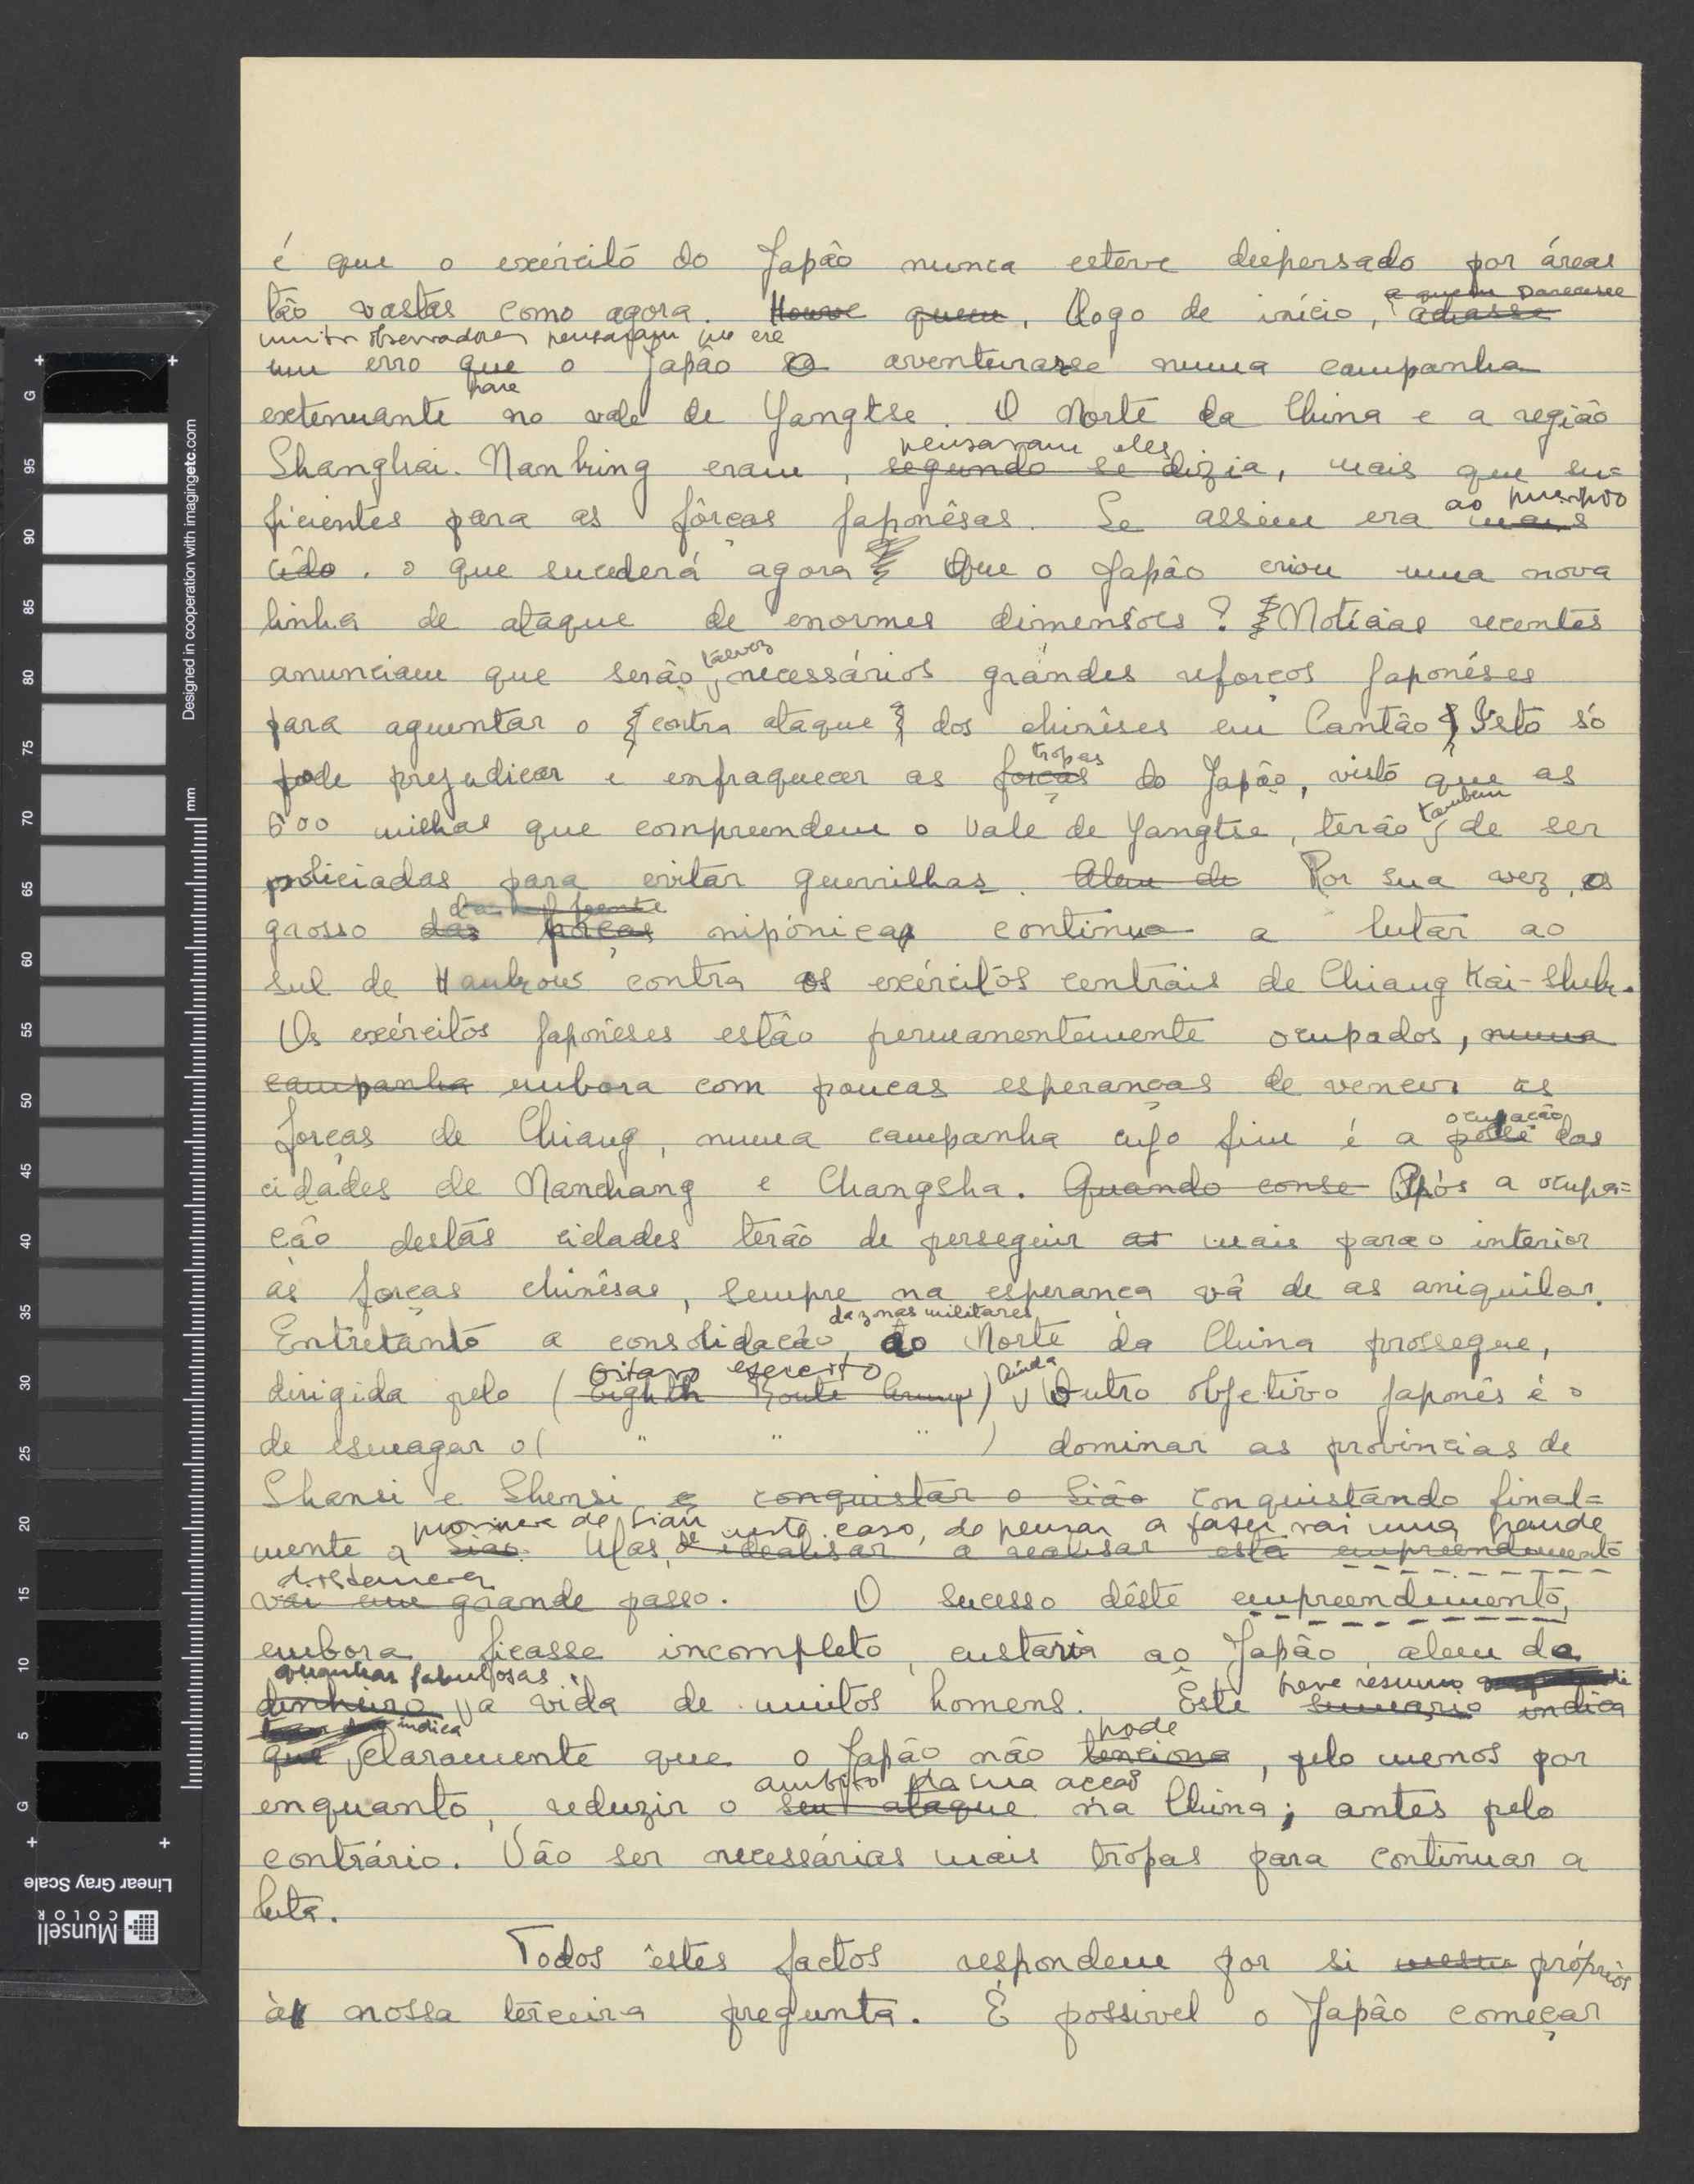 é que o exército do Japão nunca esteve dispersado por áreas
a quem parecesse
tão vastas como agora. Houve quem, Logo de início, achasse
muitos observadores pensaram que era
um erro que o Japão se aventurasse numa campanha
para
extenuante no vale de Yangtse. O Norte da China e a região
pensavam eles
Shanghai. Nanking eram, segundo se dizia, mais que su=
ao principio
ficientes para as fôrças japonêsas. Se assim era
cido. o que sucederá agora Que o Japão criou uma nova
linha de ataque de enormes dimensões? Notícias recentes
talvez
anunciam que serão, necessários grandes reforços japonêses
para aguentar o {contra ataque} dos chinêses em Cantão } Isto só
tropas
pode prejudicar e enfraquecer as forças do Japão, visto que as
tambem
600 milhas que compreendem o Vale de Yangtse, terão de ser
policiadas para evitar guerrilhas. Alem de Por sua vez, o
grosso das forças nipónicas continua a lutar ao
sul de Hankow contra os exércitos centrais de Chiang Kai-Shek.
Os exércitos japonêses estão permanentemente ocupados, numa
campanha embora com poucas esperanças de vencer as
ocupação
forças de Chiang, numa campanha cujo fim é a posse das
cidades de Nanchang e Changsha. Quando conse Após a ocupa=
ção destas cidades terão de perseguir as mais para o interior
as forças chinêsas, sempre na esperança vã de as aniquilar.
da zonas militares
Entretanto a consolidação, do Norte da China prossegue,
oitavo exercito Ainda
dirigida pelo (Eighth Route Army) Outro objetivo japonês é o
de esmagar o ( " " " ) dominar as provincias de
Shansi e Shensi e conquistar o Sião conquistando final=
provincia de Sian neste caso, de pensar a fazer vai uma grande
mente a Sião. Mas, de idealisar a realisar este empreendimento
distancia
vai um grande passo. O sucesso dêste empreendimento,
embora ficasse incompleto, custaria ao Japão, alem de
quantias fabulosas breve resumo
dinheiro a vida de muitos homens. Este sumario indica
indica pode
que claramente que o Japão não tenciona, pelo menos por
ambito da sua acção
enquanto, reduzir o seu ataque na China; antes pelo
contrário. Vão ser necessárias mais tropas para continuar a
luta.
Todos êstes factos respondem por si mesmo próprios
à nossa terceira pregunta. É possivel o Japão começar